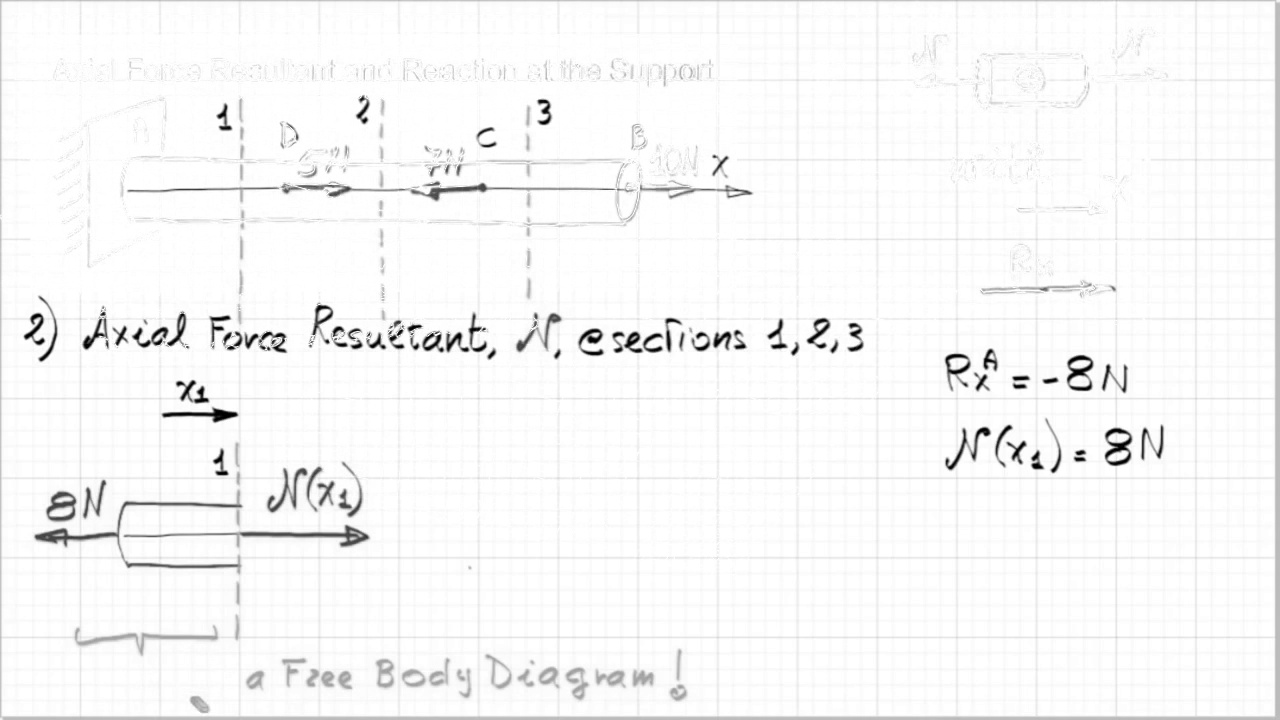 Axial Force Resultant and Reaction at the Support
N N
1 2 3
A D C B
5N 7N 10N x
x
Rx
2) Axial Force Resultant, N, @sections 1,2,3
x1
RxA = -8N
1
N(x1) = 8N
8N N(x1)
a Free Body Diagram!